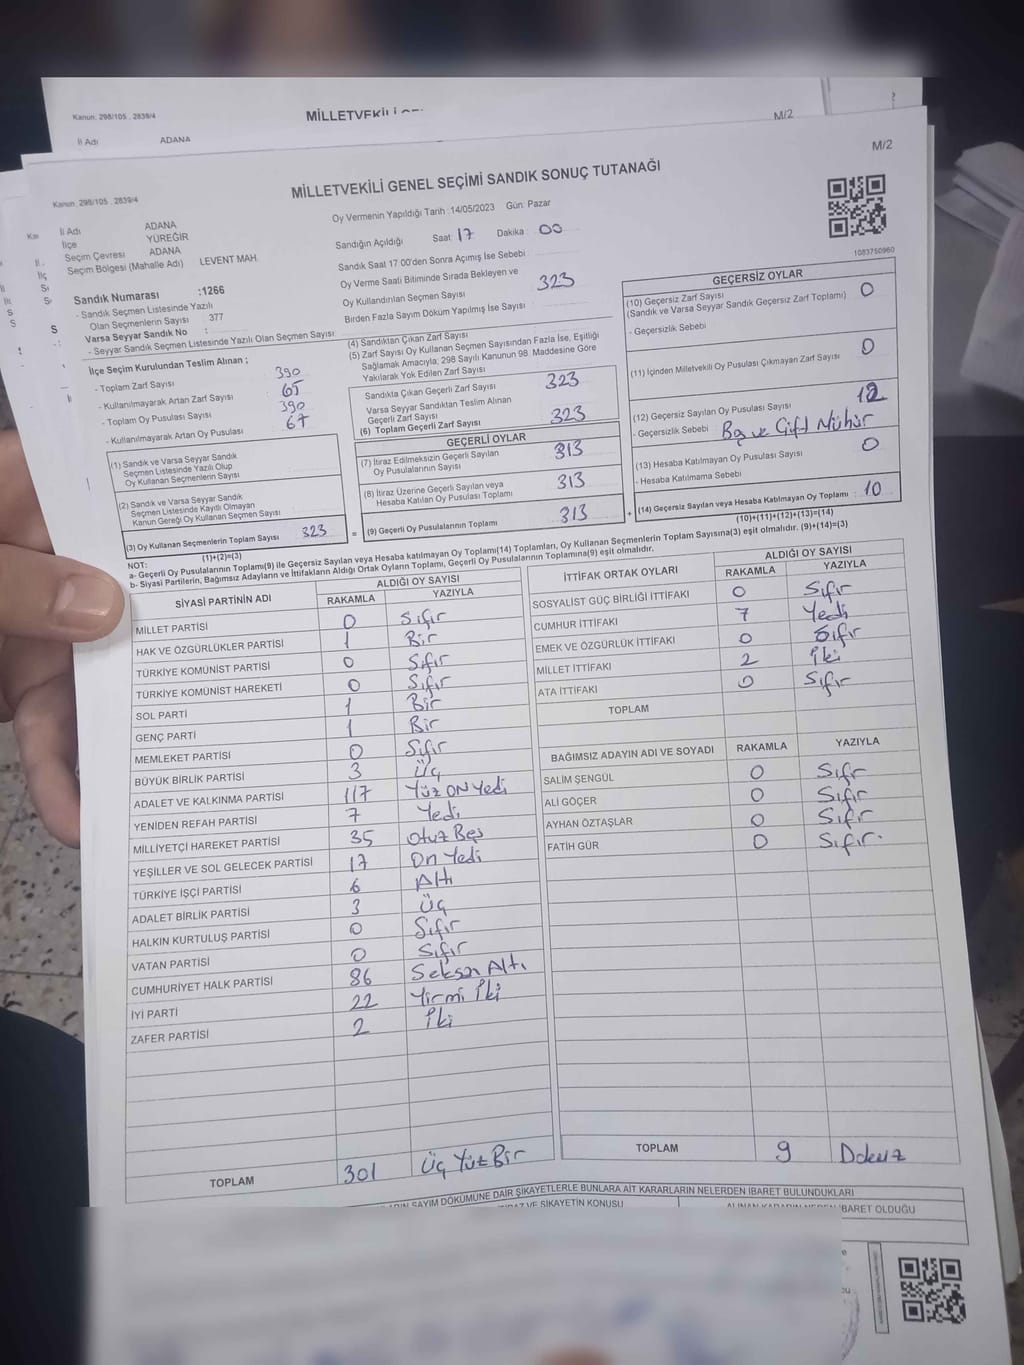 Kanun: 298/105 , 2839/4
MİLLETVEKİLİ
M/2
İl Adı ADANA
M/2
Kanun: 298/105 , 2839/4
MİLLETVEKİLİ GENEL SEÇİMİ SANDIK SONUÇ TUTANAĞI
İl Adı ADANA
İlçe YÜREĞİR
Seçim Çevresi ADANA
Seçim Bölgesi (Mahalle Adı) LEVENT MAH.
Sandık Numarası :1266
- Sandık Seçmen Listesinde Yazılı
Olan Seçmenlerin Sayısı 377
Varsa Seyyar Sandık No :
- Seyyar Sandık Seçmen Listesinde Yazılı Olan Seçmen Sayısı
Oy Vermenin Yapıldığı Tarih :14/05/2023 Gün: Pazar
Sandığın Açıldığı Saat 17 Dakika 00
Sandık Saat 17:00'den Sonra Açımış İse Sebebi
Oy Verme Saati Bitiminde Sırada Bekleyen ve
Oy Kullandırılan Seçmen Sayısı 323
Birden Fazla Sayım Döküm Yapılmış İse Sayısı
1083750960
İlçe Seçim Kurulundan Teslim Alınan ;
- Toplam Zarf Sayısı 390
- Kullanılmayarak Artan Zarf Sayısı 65
- Toplam Oy Pusulası Sayısı 390
- Kullanılmayarak Artan Oy Pusulası 67
(1) Sandık ve Varsa Seyyar Sandık
Seçmen Listesinde Yazılı Olup
Oy Kullanan Seçmenlerin Sayısı
(2) Sandık ve Varsa Seyyar Sandık
Seçmen Listesinde Kayıtlı Olmayan
Kanun Gereği Oy Kullanan Seçmen Sayısı
(3) Oy Kullanan Seçmenlerin Toplam Sayısı 323
(1)+(2)=(3)
(4) Sandıktan Çıkan Zarf Sayısı
(5) Zarf Sayısı Oy Kullanan Seçmen Sayısından Fazla İse, Eşitliği
Sağlamak Amacıyla, 298 Sayılı Kanunun 98. Maddesine Göre
Yakılarak Yok Edilen Zarf Sayısı
Sandıkta Çıkan Geçerli Zarf Sayısı 323
Varsa Seyyar Sandıktan Teslim Alınan
Geçerli Zarf Sayısı
(6) Toplam Geçerli Zarf Sayısı 323
GEÇERLİ OYLAR
(7) İtiraz Edilmeksizin Geçerli Sayılan
Oy Pusulalarının Sayısı 313
(8) İtiraz Üzerine Geçerli Sayılan veya
Hesaba Katılan Oy Pusulası Toplamı 313
= (9) Geçerli Oy Pusulalarının Toplamı 313 +
GEÇERSİZ OYLAR
(10) Geçersiz Zarf Sayısı 0
(Sandık ve Varsa Seyyar Sandık Geçersiz Zarf Toplamı)
- Geçersizlik Sebebi
(11) İçinden Milletvekili Oy Pusulası Çıkmayan Zarf Sayısı 0
(12) Geçersiz Sayılan Oy Pusulası Sayısı
- Geçersizlik Sebebi Boş ve Çift Mühür
(13) Hesaba Katılmayan Oy Pusulası Sayısı 0
- Hesaba Katılmama Sebebi
(14) Geçersiz Sayılan veya Hesaba Katılmayan Oy Toplamı : 10
(10)+(11)+(12)+(13)=(14)
NOT:
a- Geçerli Oy Pusulalarının Toplamı(9) ile Geçersiz Sayılan veya Hesaba katılmayan Oy Toplam(14) Toplamları, Oy Kullanan Seçmenlerin Toplam Sayısına(3) eşit olmalıdır. (9)+(14)=(3)
b- Siyasi Partilerin, Bağımsız Adayların ve İttifakların Aldığı Ortak Oyların Toplamı, Geçerli Oy Pusulalarının Toplamına(9) eşit olmalıdır.
SİYASİ PARTİNİN ADI ALDIĞI OY SAYISI
RAKAMLA YAZIYLA
MİLLET PARTİSİ 0 Sıfır
HAK VE ÖZGÜRLÜKLER PARTİSİ 1 Bir
TÜRKİYE KOMÜNİST PARTİSİ 0 Sıfır
TÜRKİYE KOMÜNİST HAREKETİ 0 Sıfır
SOL PARTİ 1 Bir
GENÇ PARTİ 1 Bir
MEMLEKET PARTİSİ 0 Sıfır
BÜYÜK BİRLİK PARTİSİ 3 Üç
ADALET VE KALKINMA PARTİSİ 117 Yüz ON Yedi
YENİDEN REFAH PARTİSİ 7 Yedi
MİLLİYETÇİ HAREKET PARTİSİ 35 Otuz Beş
YEŞİLLER VE SOL GELECEK PARTİSİ 17 On Yedi
TÜRKİYE İŞÇİ PARTİSİ 6 Altı
ADALET BİRLİK PARTİSİ 3 Üç
HALKIN KURTULUŞ PARTİSİ 0 Sıfır
VATAN PARTİSİ 0 Sıfır
CUMHURİYET HALK PARTİSİ 86 Seksen Altı
İYİ PARTİ 22 Yirmi İki
ZAFER PARTİSİ 2 İki
TOPLAM 301 Üç Yüz Bir
İTTİFAK ORTAK OYLARI ALDIĞI OY SAYISI
RAKAMLA YAZIYLA
SOSYALİST GÜÇ BİRLİĞİ İTTİFAKI 0 Sıfır
CUMHUR İTTİFAKI 7 Yedi
EMEK VE ÖZGÜRLÜK İTTİFAKI 0 Sıfır
MİLLET İTTİFAKI 2 İki
ATA İTTİFAKI 0 Sıfır
TOPLAM
BAĞIMSIZ ADAYIN ADI VE SOYADI RAKAMLA YAZIYLA
SALİM ŞENGÜL 0 Sıfır
ALİ GÖÇER 0 Sıfır
AYHAN ÖZTAŞLAR 0 Sıfır
FATİH GÜR 0 Sıfır.
TOPLAM 9 Dokuz
SAYIM DÖKÜMÜNE DAİR ŞİKAYETLERLE BUNLARA AİT KARARLARIN NELERDEN İBARET BULUNDUKLARI
VE ŞİKAYETİN KONUSU
İBARET OLDUĞU